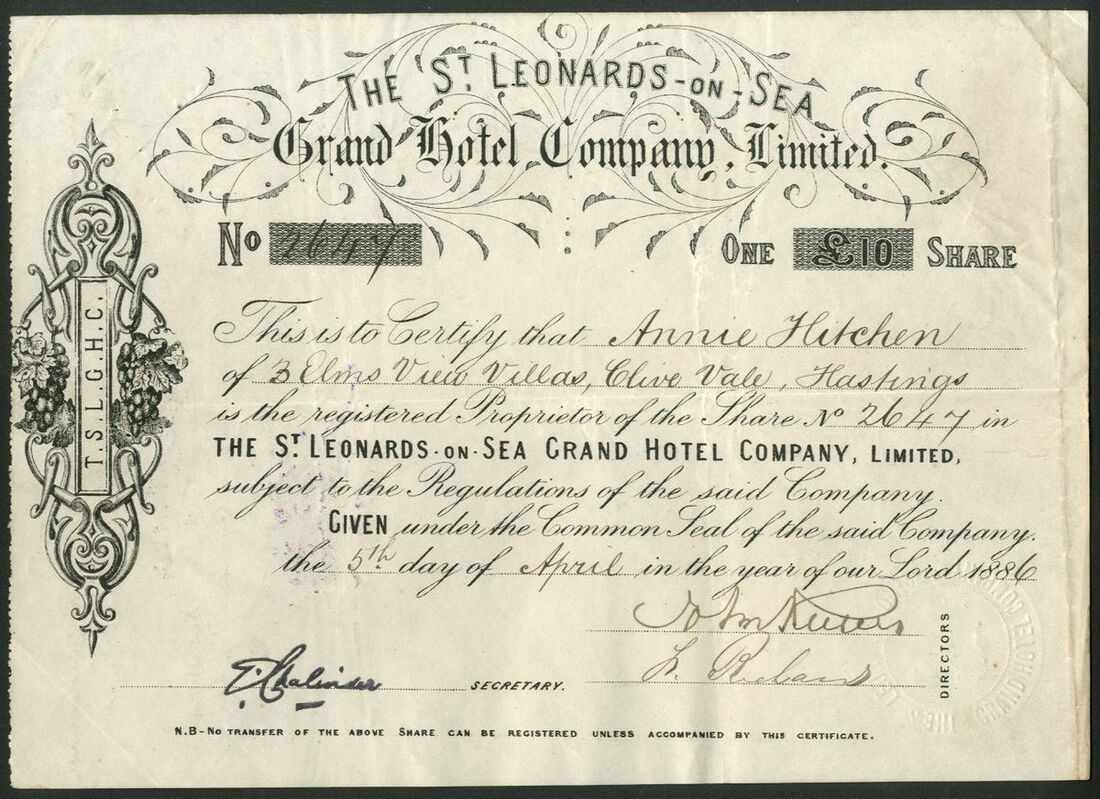 THE ST LEONARDS-ON-SEA
Grand Hotel Company, Limited.
No 2647 ONE £10 SHARE
T.S.L.G.H.C.
This is to Certify that Annie Hitchen
of 3 Elms View Villas, Clive Vale, Hastings
is the registered Proprietor of the Share No 2647 in
THE ST LEONARDS-ON-SEA GRAND HOTEL COMPANY, LIMITED,
subject to the Regulations of the said Company.
GIVEN under the Common Seal of the said Company.
the 5th day of April in the year of our Lord 1886
John
DIRECTORS
SECRETARY.
N.B-NO TRANSFER OF THE ABOVE SHARE CAN BE REGISTERED UNLESS ACCOMPANIED BY THIS CERTIFICATE.
GRAND HOTEL